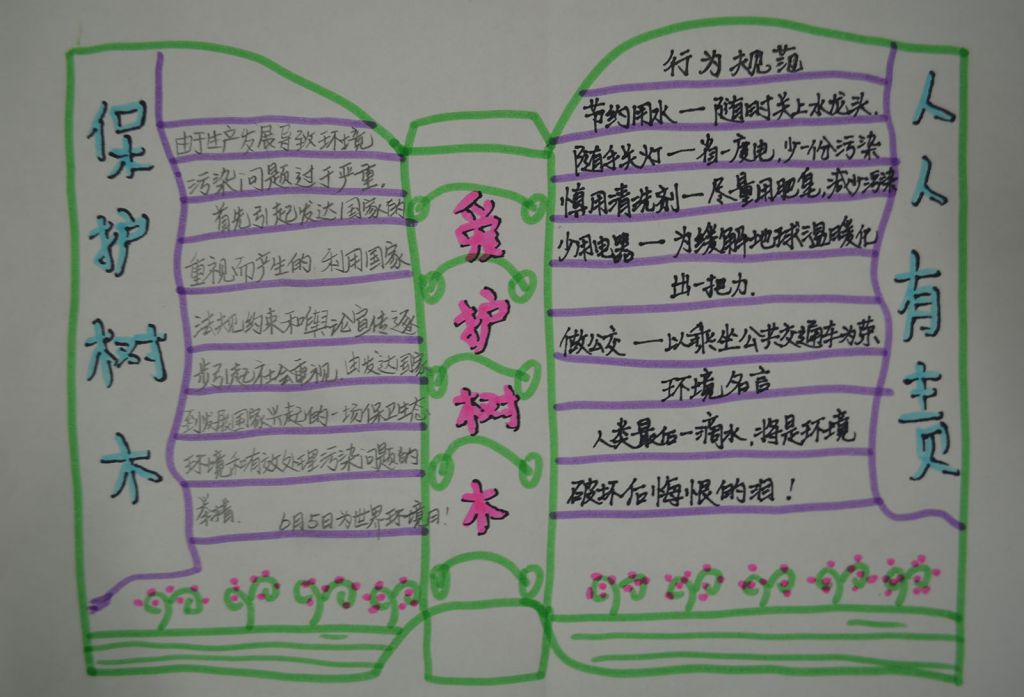 保护树木
由于生产发展导致环境
污染问题过于严重，
首先引起发达国家的
重视而产生的，利用国家
法规约束和舆论宣传逐
步引起社会重视，由发达国家
到发展国家兴起的一场保卫生态
环境和有效处理污染问题的
6月5日为世界环境日！
爱护树木
行为规范
节约用水一随时关上水龙头．
随手关灯一省一度电，少一份污染
慎用清洗剂一尽量用肥皂，减少污染
少用电器一为缓解地球温暖化
出一把力．
做公交一以乘坐公共交通车为荣
环境名言
人类最后一滴水，将是环境
破坏后悔恨的泪！
人人有责